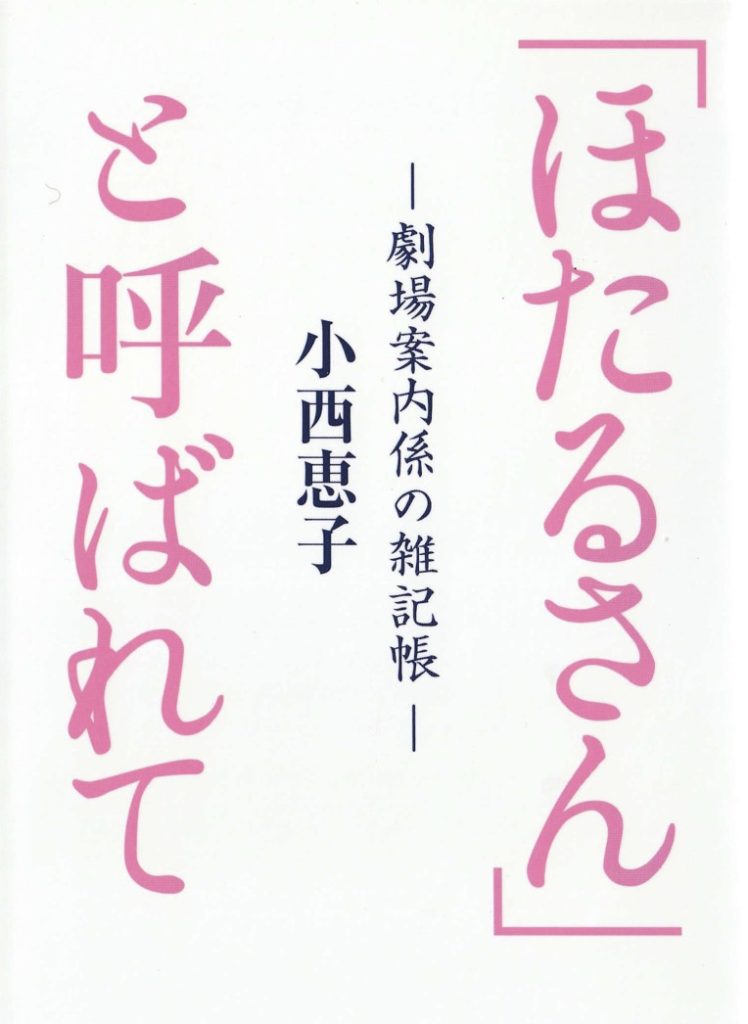 「ほたるさん」
と呼ばれて
—劇場案内係の雑記帳—
小西恵子